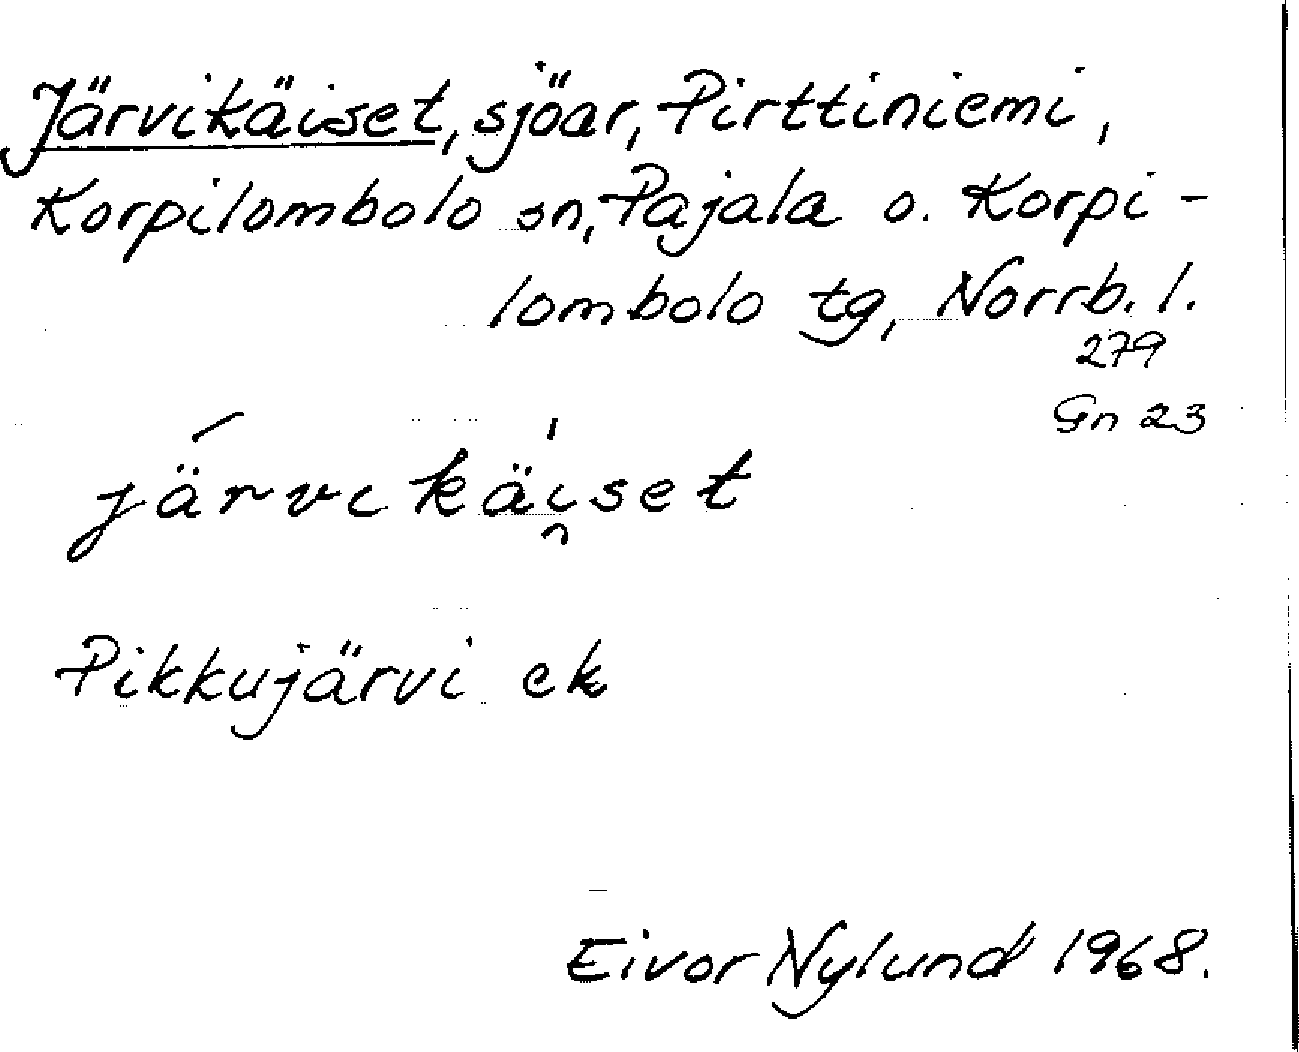 Järvikäiset, sjöar, Pirttiniemi,
Korpilombolo sn, Pajala o. Korpi-
lombolo tg, Norrb. l.
279
Gn 23
järvikäi̯set
Pikkujärvi ek
Eivor Nylund 1968.